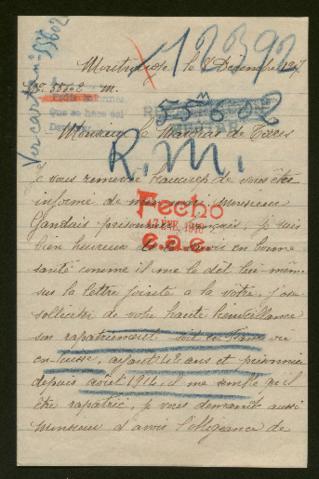 12392
Ver carta nº 55602
le Décembre 1917
nº 55602 m.
55602
Monsieur le
R.M.
Je vous remercie beaucoup de vous être
informé de mon Monsieur
Gandais prisonnier français, je suis
bien heureux de le savoir en bonne
Fecho
1918
c.a.c
santé comme il me le dit lui-même
sur la lettre jointe à la votre, j'ose
solliciter de votre haute bienveillance
son rapatriement soit en France ou
en Suisse, ayant 42 ans et prisonnier
depuis août 1914, il me semble qu'il
être rapatrié, je vous demanderait aussi
Monsieur d'avoir l'obligeance de